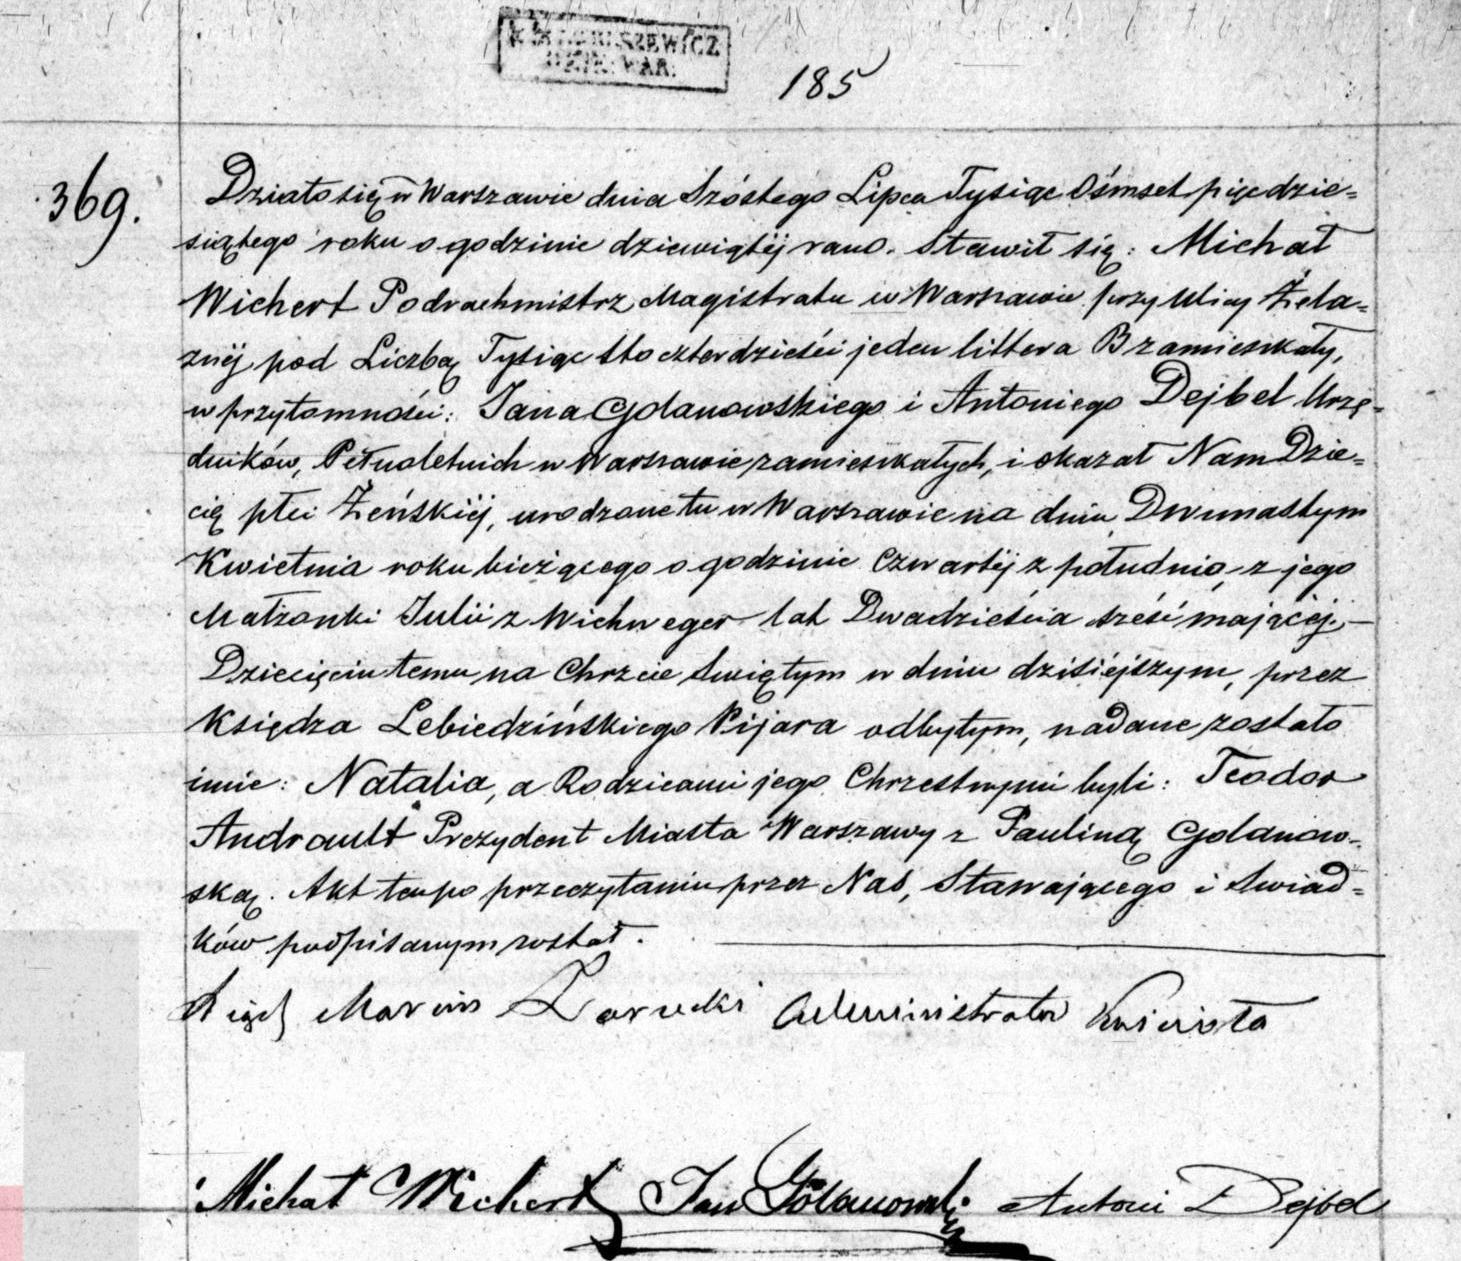 185
369.
Działo się w Warszawie dnia Szóstego Lipca Tysiąc Ośmset pięćdzie=
siątego roku o godzinie dziewiątéj rano. Stawił się: Michał
Wichert Podrachmistrz Magistratu w Warszawie przy Ulicy Żela=
znéj pod Liczbą Tysiąc sto czterdzieści jeden littera B zamieszkały,
w przytomności: Jana Gdanowskiego i Antoniego Dejbel Urzę=
dników, Pełnoletnich w Warszawie zamieszkałych, i okazał Nam Dzie=
cię płci Żeńskiéj, urodzone tu w Warszawie na dniu Dwunastym
Kwietnia roku bieżącego o godzinie Czwartéj z południa, z jego
Małżonki Julii z Wichweger lat Dwadzieścia sześć mającéj.—
Dziecięciu temu na Chrzcie Świętym w dniu dzisiéjszym, przez
Księdza Lebiedzińskiego Pijara odbytym, nadane zostało
imie: Natalia, a Rodzicami jego Chrzestnymi byli: Teodor
Andrault Prezydent Miasta Warszawy z Pauliną Gdanow=
ską. Akt ten po przeczytaniu przez Nas, Stawającego i Świad=
ków podpisanym został.
Marcin Administrator
Michał Wichert Jan Antoni Dejbel